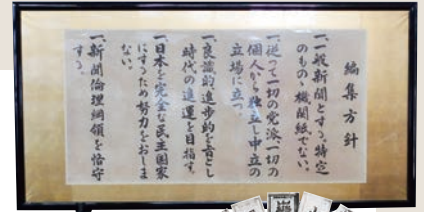 編集方針
一、一般新聞とする。特定
のもの、機関紙でない。
一、従って一切の党派一切の
個人から独立し中立の
立場に立つ。
一、良識的進歩的を旨とし
時代の進運を目指す。
一、日本を完全な民主国家
にするため努力をおしま
ない。
一、新聞倫理綱領を恪守
する。